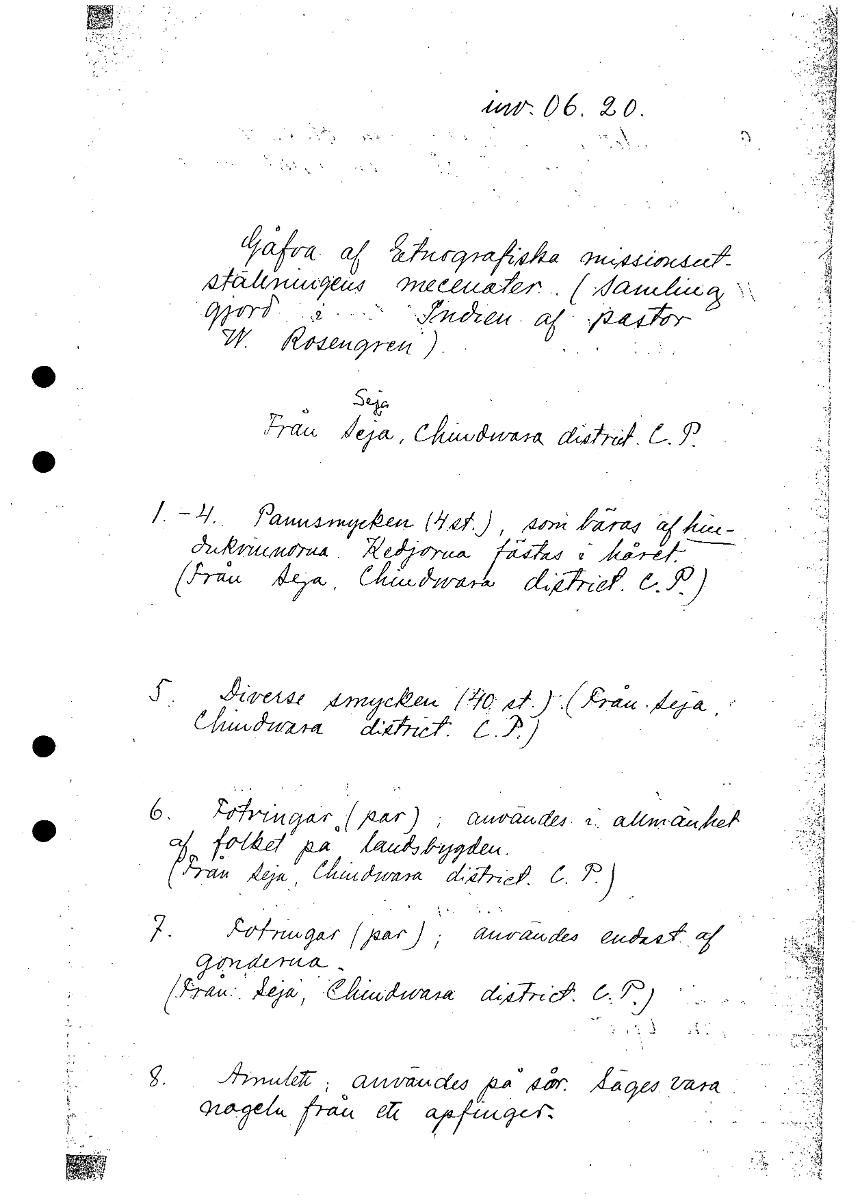 inv. 06. 20.
Gåfva af Etnografiska missionsut-
ställningens mecenater. (Samling
gjord i Indien af pastor
W. Rosengren)
Seja
Från Seja, Chindwara district. C. P.
1.-4. Pannsmycken (4 st.), som bäras af hin-
dukvinnorna. Kedjorna fästas i håret.
(Från Seja, Chindwara district. C. P.)
5. Diverse smycken (40 st.) (Från Seja,
Chindwara district. C. P.)
6. Fotringar (par); användes i allmänhet
af folket på landsbygden.
(Från Seja, Chindwara district. C. P.)
7. Fotringar (par); användes endast af
gonderna.
(Från Seja, Chindwara district. C. P.)
8. Amulett; användes på sår. Säges vara
nageln från ett apfinger.